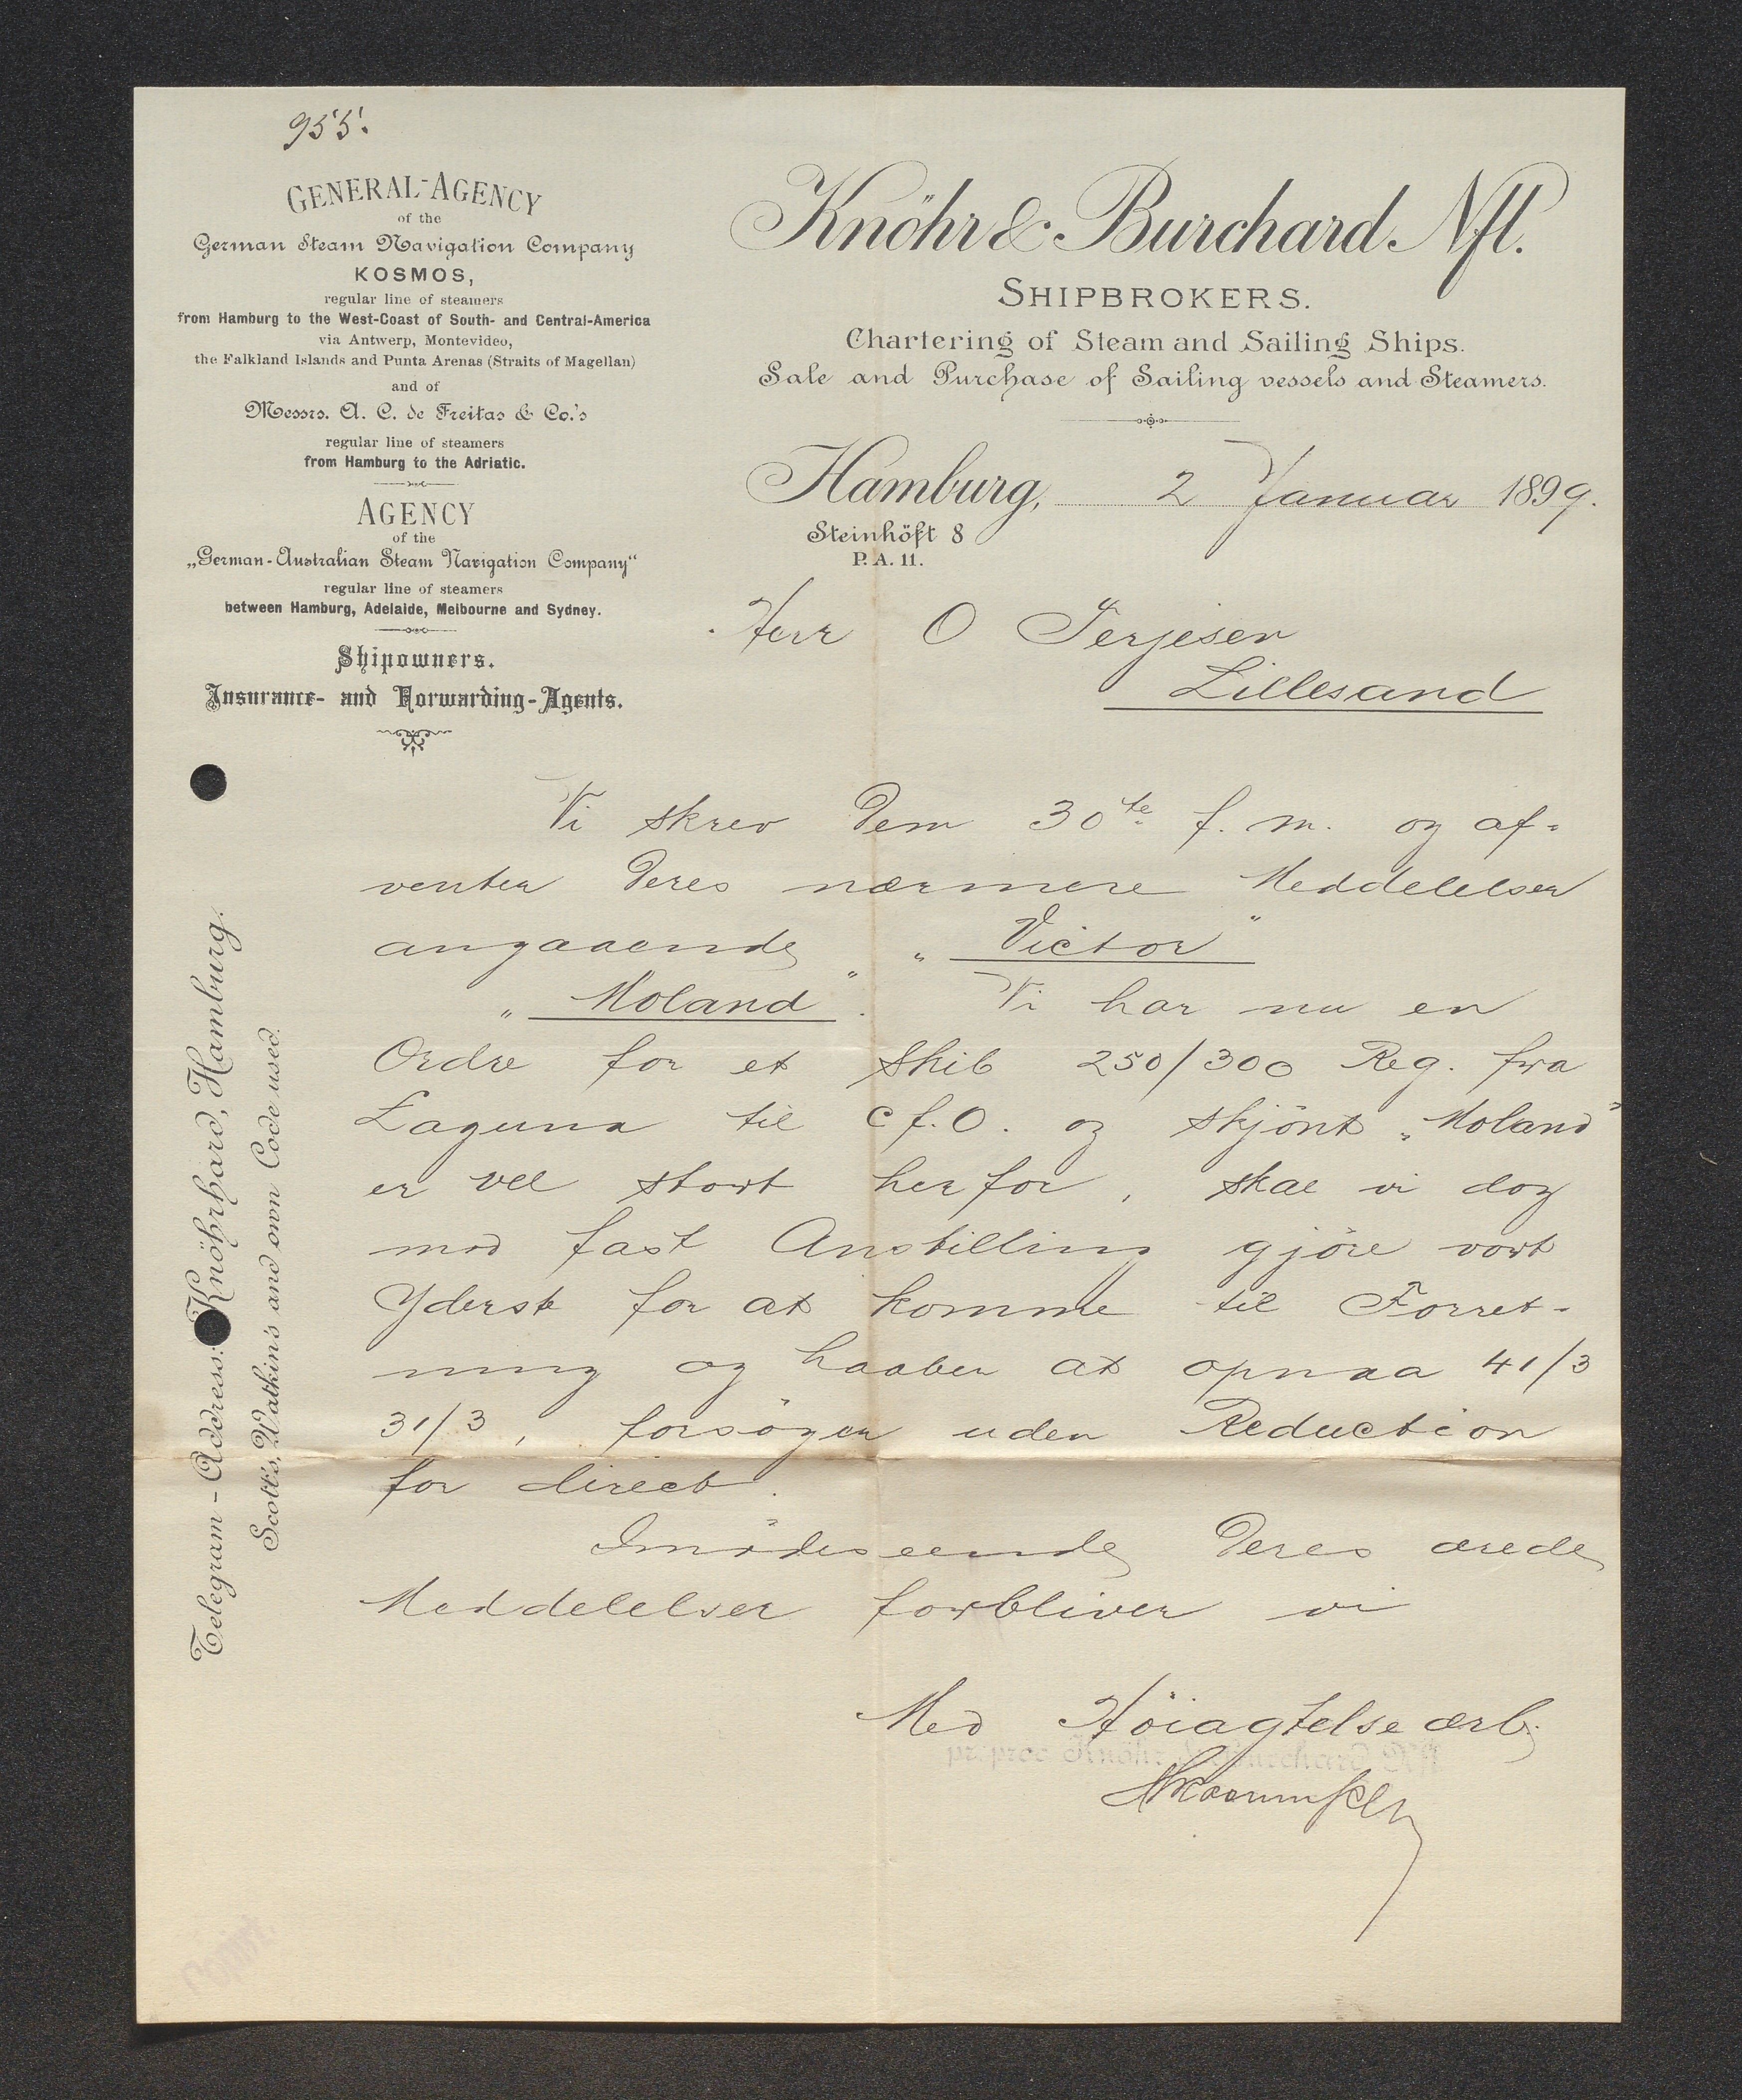 955.
GENERAL-AGENCY
of the
German Steam Navigation Company
KOSMOS,
regular line of steamers
from Hamburg to the West-Coast of South- and Central-America
via Antwerp, Montevideo,
the Falkland Islands and Punta Arenas (Straits of Magellan)
and of
Messrs. A. C. de Freitas & Co.'s
regular line of steamers
from Hamburg to the Adriatic.
AGENCY
of the
„German-Australian Steam Navigation Company“
regular line of steamers
between Hamburg, Adelaide, Melbourne and Sydney.
Shipowners.
Insurance- and Forwarding-Agents.
Telegram-Address: Knöhrhard, Hamburg.
Scott's, Watkin's and own Code used.
Knöhr & Burchard Nfl.
SHIPBROKERS.
Chartering of Steam and Sailing Ships.
Sale and Purchase of Sailing vessels and Steamers.
Hamburg, 2 Januar 1899.
Steinhöft 8
P. A. 11.
Herr O Terjesen
Lillesand
Vi skrev Dem 30te f. m. og af-
venter Deres nærmere Meddelelser
angaaende „Victor“
„Moland“. Vi har nu en
Ordre for et Skib 250/300 Reg. fra
Laguna til C f. O. og skjönt „Moland“
er vel stort herfor, skal vi dog
med fast Anstilling gjöre vort
Yderste for at komme til Forret-
ning og haaber at opnaa 41/3
31/3, forsöger uden Reduction
for direct.
Imödeseende Deres ærede
Meddelelser forbliver vi
Med Höiagtelse ærb.
pr. proc Knöhr & Burchard Nfl